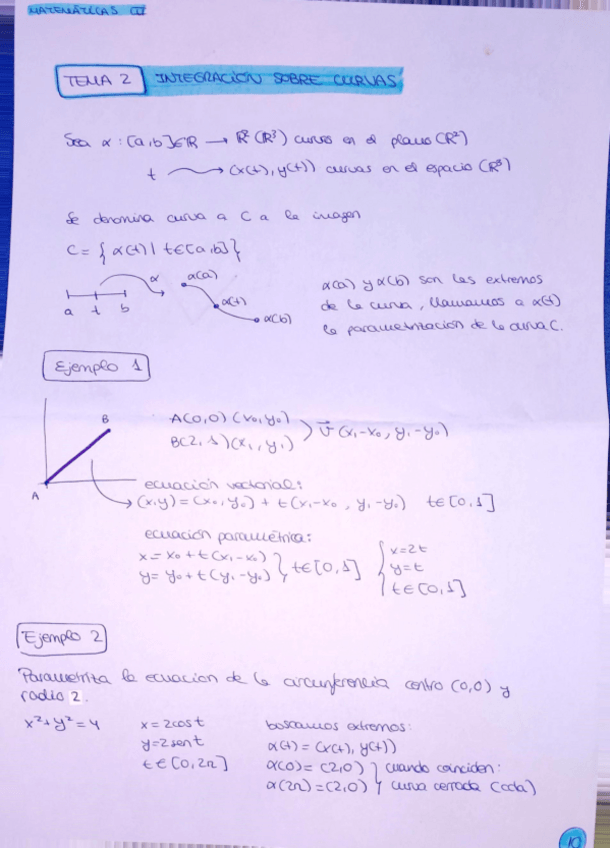 MATEMÁTICAS III
TEMA 2 INTEGRACIÓN SOBRE CURVAS
Sea α : [a,b]∈R → R² (R³) curvas en el plano (R²)
t → (x(t), y(t)) curvas en el espacio (R³)
Se denomina curva a C a la imagen
C = { α(t) | t∈[a,b] }
α α(a) α(t) α(b)
a t b
α(a) y α(b) son los extremos
de la curva, llamamos a α(t)
la parametrización de la curva C.
Ejemplo 1
A B
A(0,0) (x₀,y₀)
B(2,1) (x₁,y₁)
v⃗ (x₁-x₀, y₁-y₀)
ecuación vectorial:
(x,y) = (x₀,y₀) + t(x₁-x₀, y₁-y₀) t∈[0,1]
ecuación paramétrica:
x = x₀ + t(x₁-x₀)
y = y₀ + t(y₁-y₀) } t∈[0,1]
{ x=2t
y=t
t∈[0,1]
Ejemplo 2
Parametriza la ecuacion de la circunferencia centro (0,0) y
radio 2.
x²+y²=4
x = 2cost
y=2sent
t∈[0,2π]
buscamos extremos:
α(t) = (x(t), y(t))
α(0) = (2,0) } cuando coinciden:
α(2π) = (2,0) curva cerrada (cda)
10